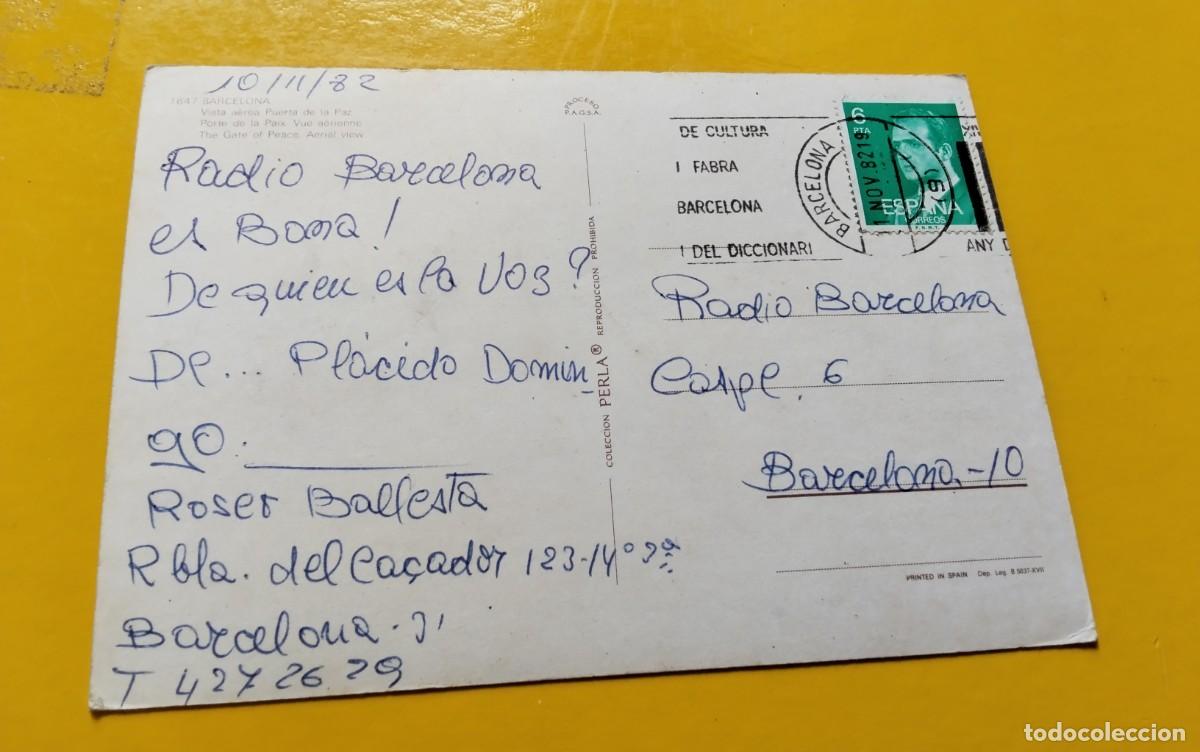 10/11/82
1647 BARCELONA
Vista aérea Puerta de la Paz
Porte de la Paix. Vue aérienne
The Gate of Peace. Aerial view
Radio Barcelona
es Bona!
De quien es la Voz?
De... Plácido Domin
go.
Roser Ballesta
Rbla. del Caçador 123-14º 3ª
Barcelona-31
T 427 26 29
PROCESO
P.A.G.S.A.
COLECCION PERLA® REPRODUCCION PROHIBIDA
DE CULTURA
I FABRA
BARCELONA
I DEL DICCIONARI
BARCELONA
NOV. 82 19
(9)
6
PTA
ESPAÑA
CORREOS
F.N.M.T.
ANY D
Radio Barcelona
Caspe, 6
Barcelona-10
PRINTED IN SPAIN Dep. Leg. B 5037-XVII
todocoleccion